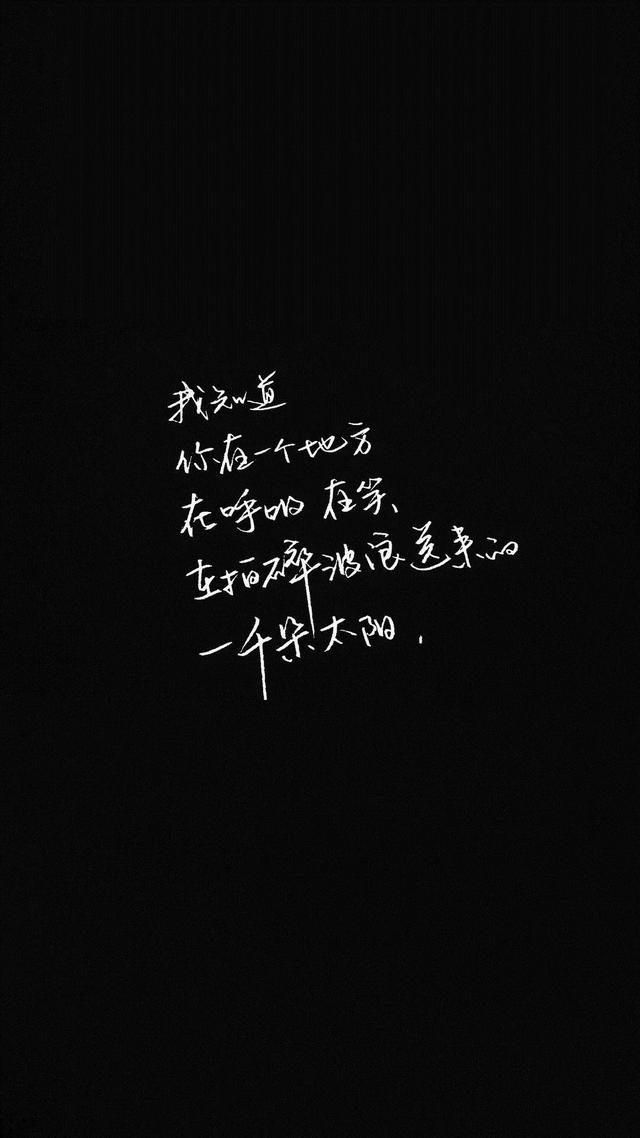 我知道
你在一个地方
在呼吸 在笑、
在拍碎波浪送来的
一千朵太阳.